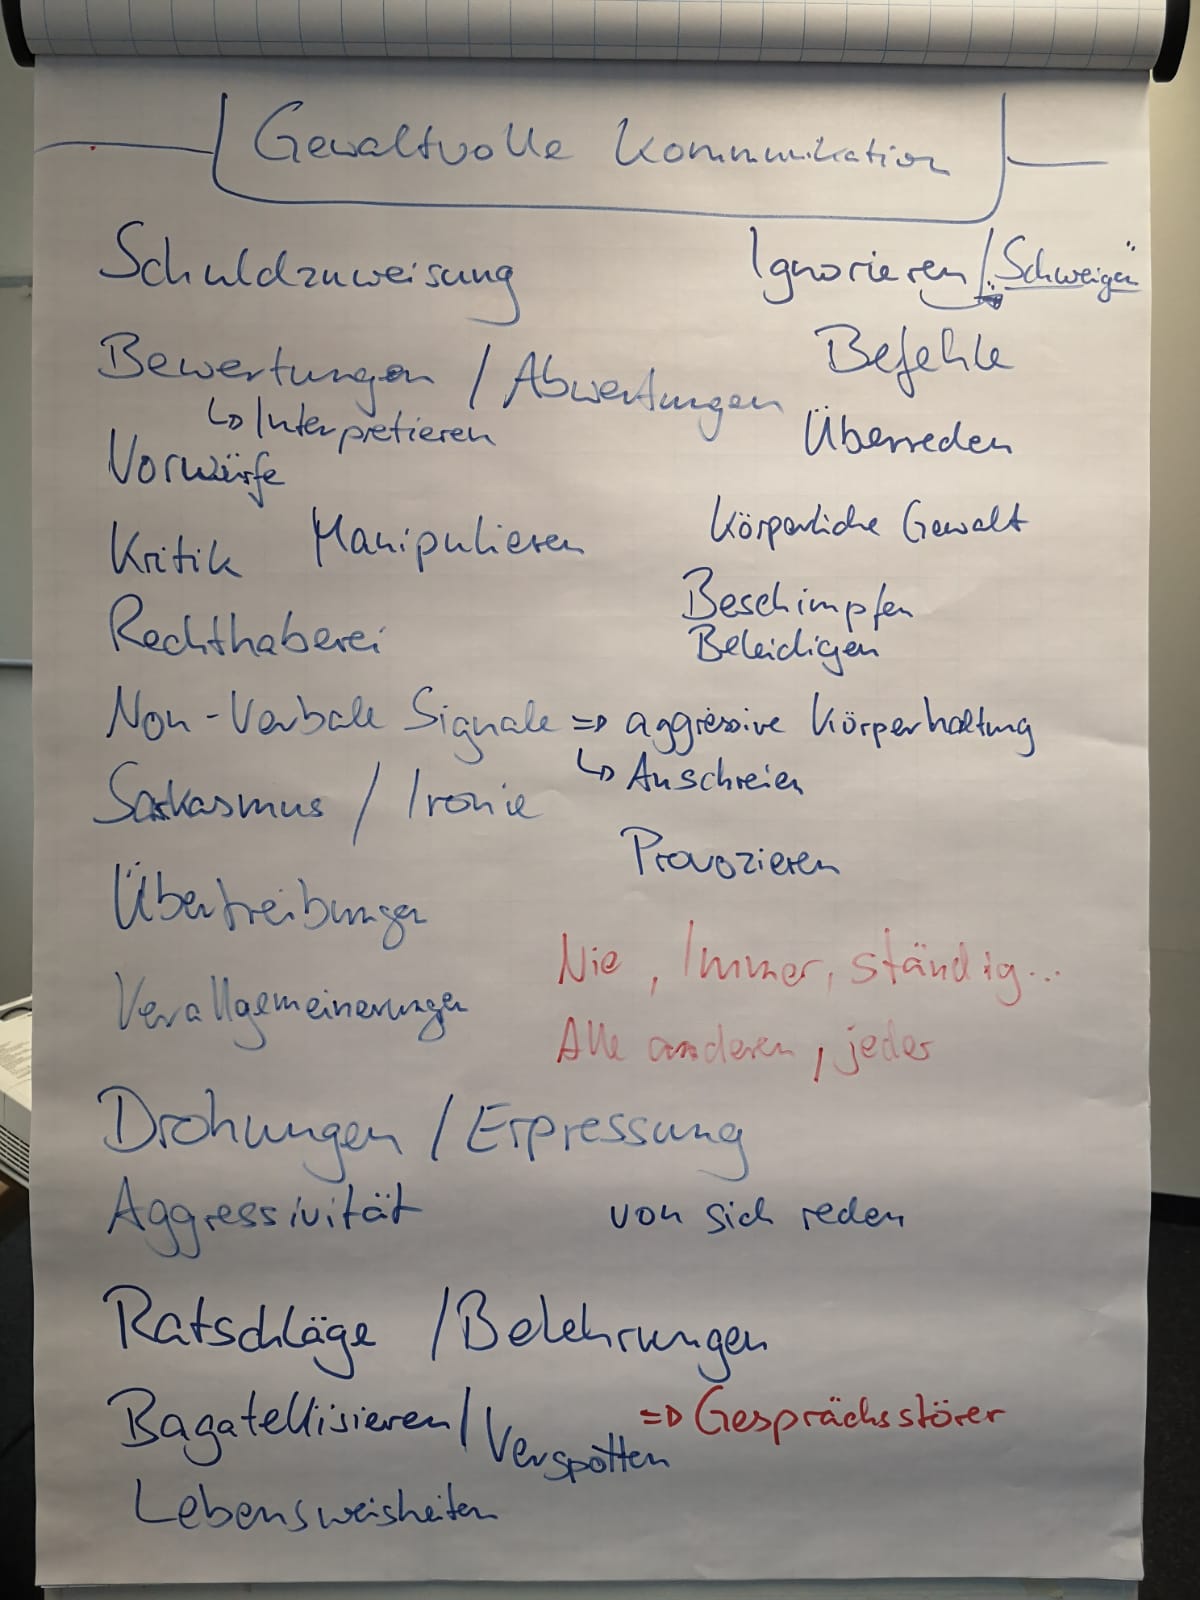 Gewaltvolle Kommunikation
Schuldzuweisung
Ignorieren / "Schweigen"
Bewertungen / Abwertungen
↳ Interpretieren
Befehle
Überreden
Vorwürfe
Kritik
Manipulieren
Körperliche Gewalt
Rechthaberei
Beschimpfen
Beleidigen
Non-Verbale Signale => aggressive Körperhaltung
↳ Anschreien
Sarkasmus / Ironie
Provozieren
Übertreibungen
Nie, Immer, ständig...
Verallgemeinerungen
Alle anderen, jeder
Drohungen / Erpressung
Aggressivität
von sich reden
Ratschläge / Belehrungen
Bagatellisieren / Verspotten
=> Gesprächsstörer
Lebensweisheiten